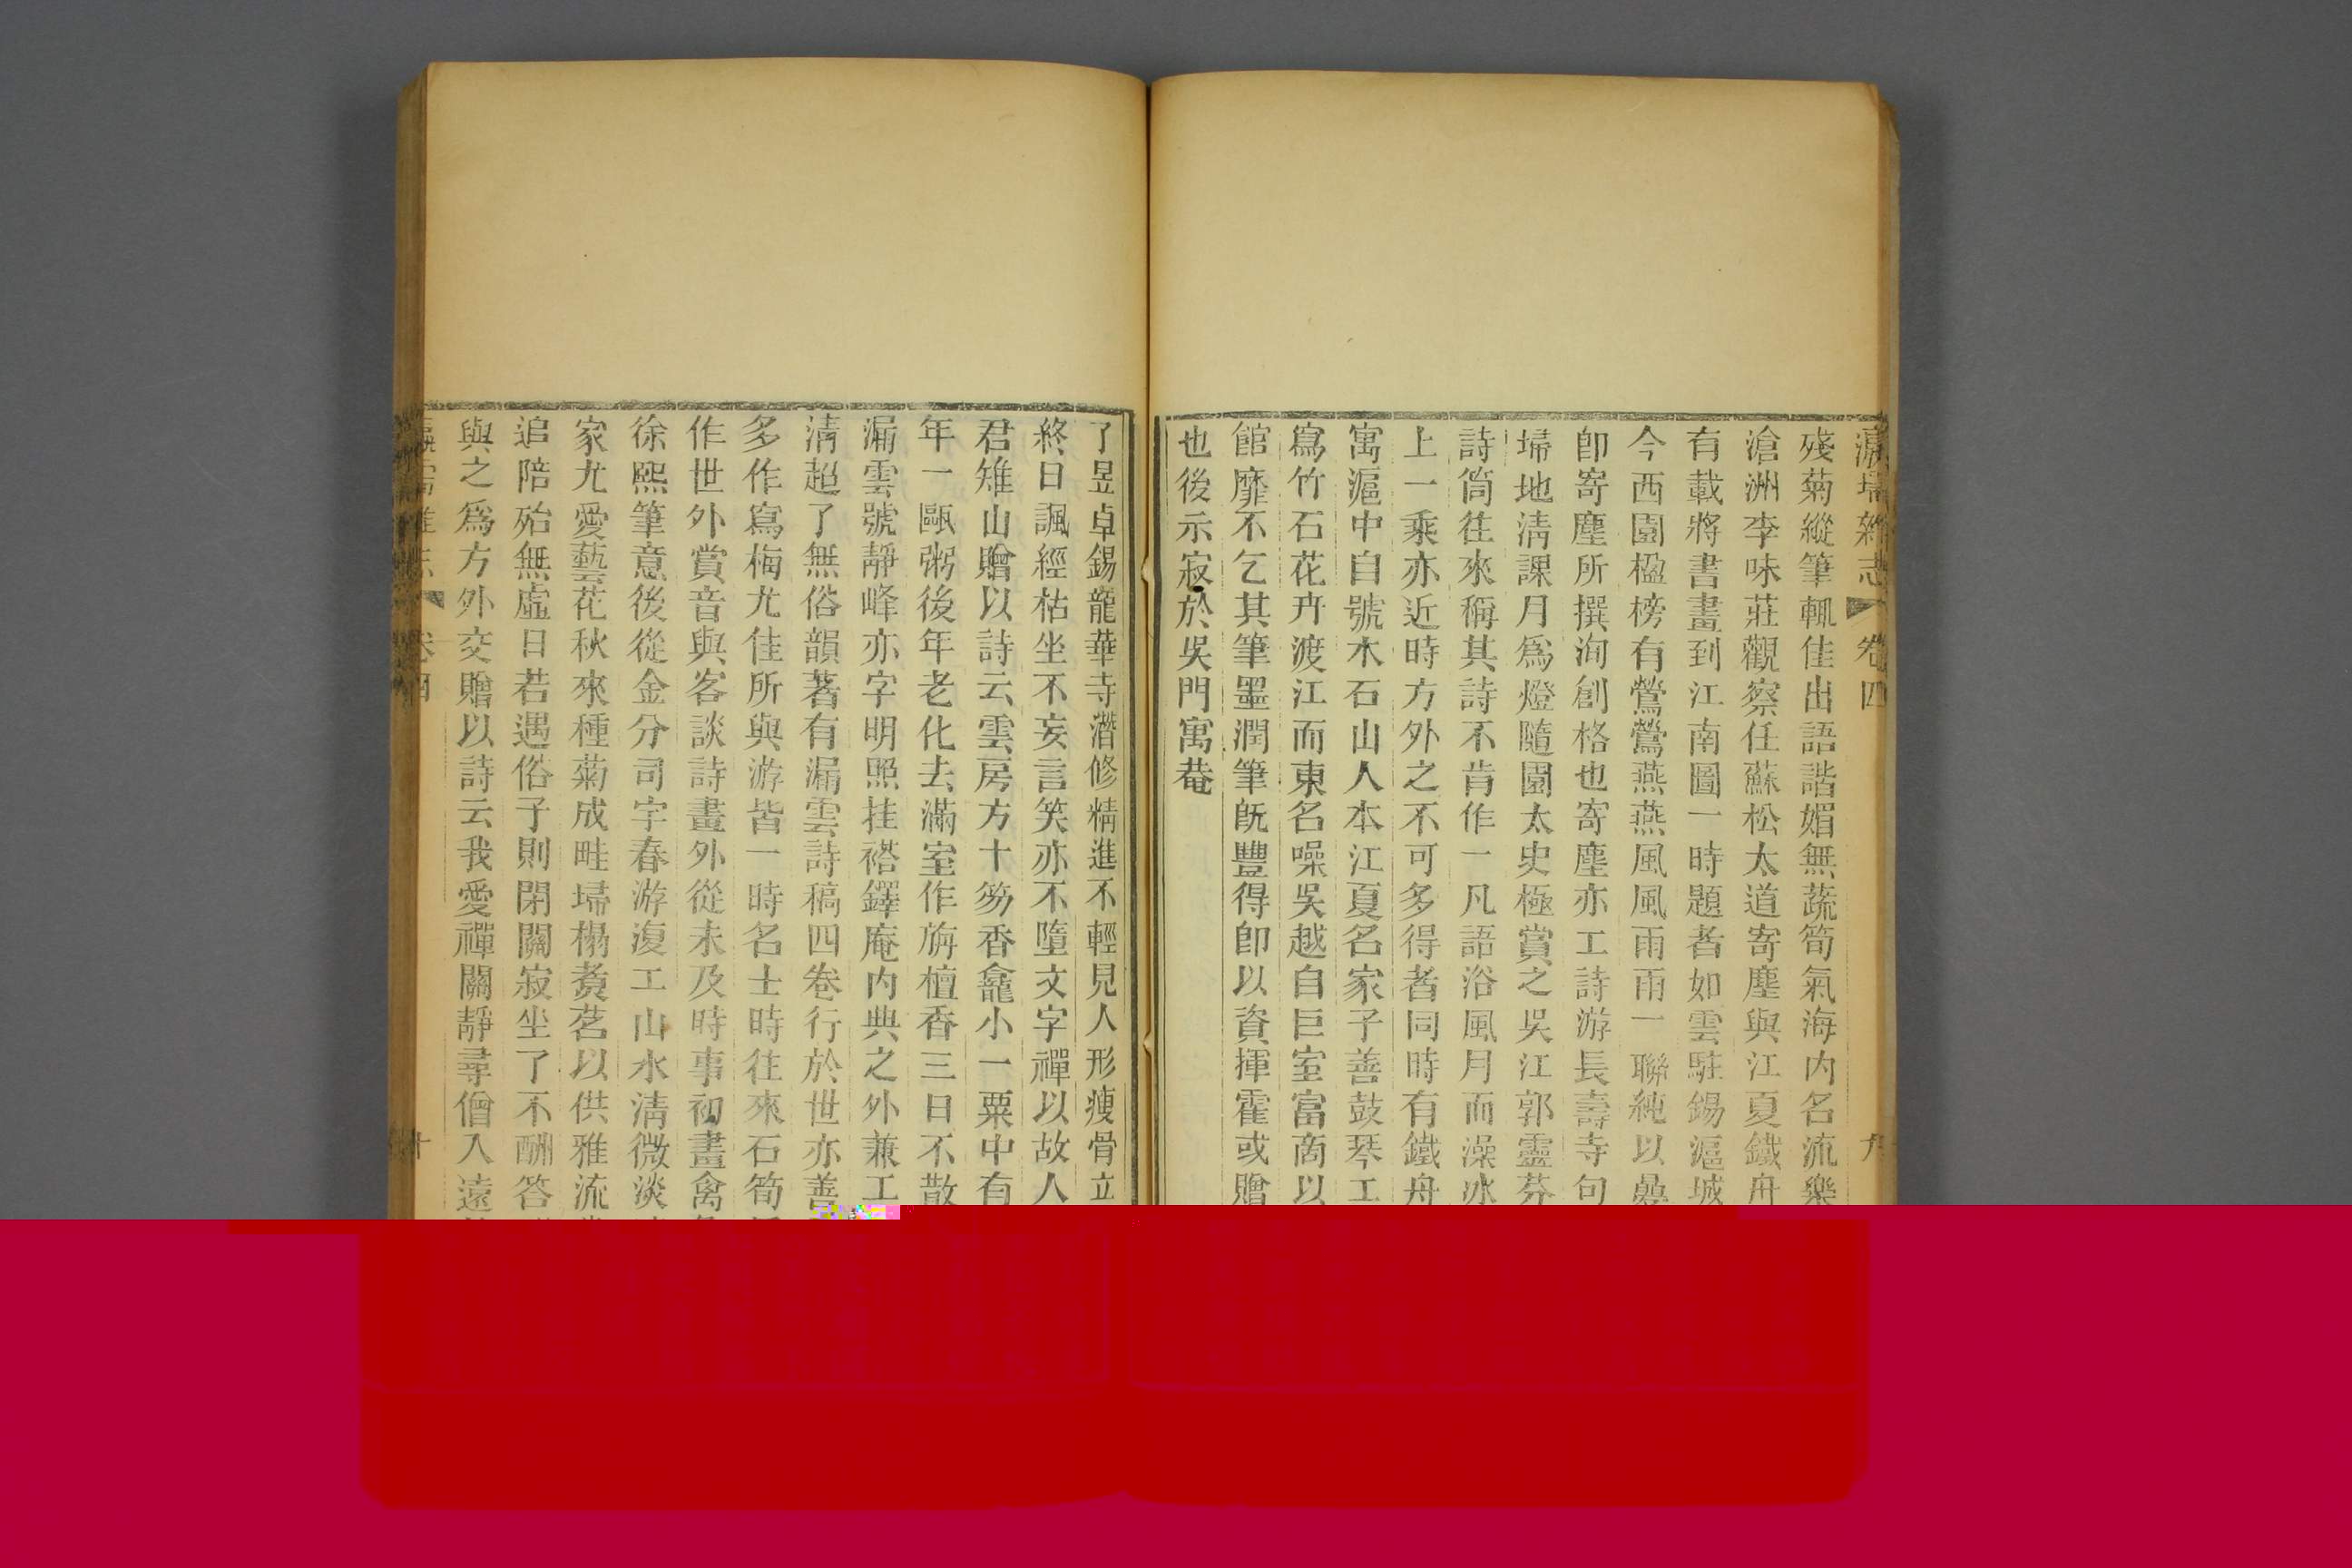 瀛壖雜志 卷四 九
殘菊縱筆輒佳出語諧媚無蔬筍氣海内名流樂
滄洲李味莊觀察任蘇松太道寄塵與江夏鐵舟
有載將書畫到江南圖一時題者如雲駐錫滬城
今西園楹榜有鶯鶯燕燕風風雨雨一聯純以
卽寄塵所撰洵創格也寄塵亦工詩游長壽寺句
埽地淸課月爲燈隨園太史極賞之吳江郭靈芬
詩筒往來稱其詩不肯作一凡語浴風月而澡冰
上一乘亦近時方外之不可多得者同時有鐵舟
寓滬中自號木石山人本江夏名家子善鼓琴工
寫竹石花卉渡江而東名噪吳越自巨室富商以
館靡不乞其筆墨潤筆旣豐得卽以資揮霍或贈
也後示寂於吳門寓菴
了昱卓錫龍華寺潛修精進不輕見人形瘦骨立
終日諷經枯坐不妄言笑亦不墮文字禪以故人
君雉山贈以詩云雲房方十笏香龕小一粟中有
年一甌粥後年老化去滿室作旃檀香三日不散
漏雲號靜峰亦字明照挂褡鐸庵内典之外兼工
淸超了無俗韻著有漏雲詩稿四卷行於世亦善
多作寫梅尤佳所與游皆一時名士時往來石筍
作世外賞音與客談詩畫外從未及時事初畫禽
徐熙筆意後從金分司字春游復工山水淸微淡
家尤愛藝花秋來種菊成畦埽榻煑茗以供雅流
追陪殆無虛日若遇俗子則閉關寂坐了不酬答
與之爲方外交贈以詩云我愛禪關靜尋僧入遠
卷四 十